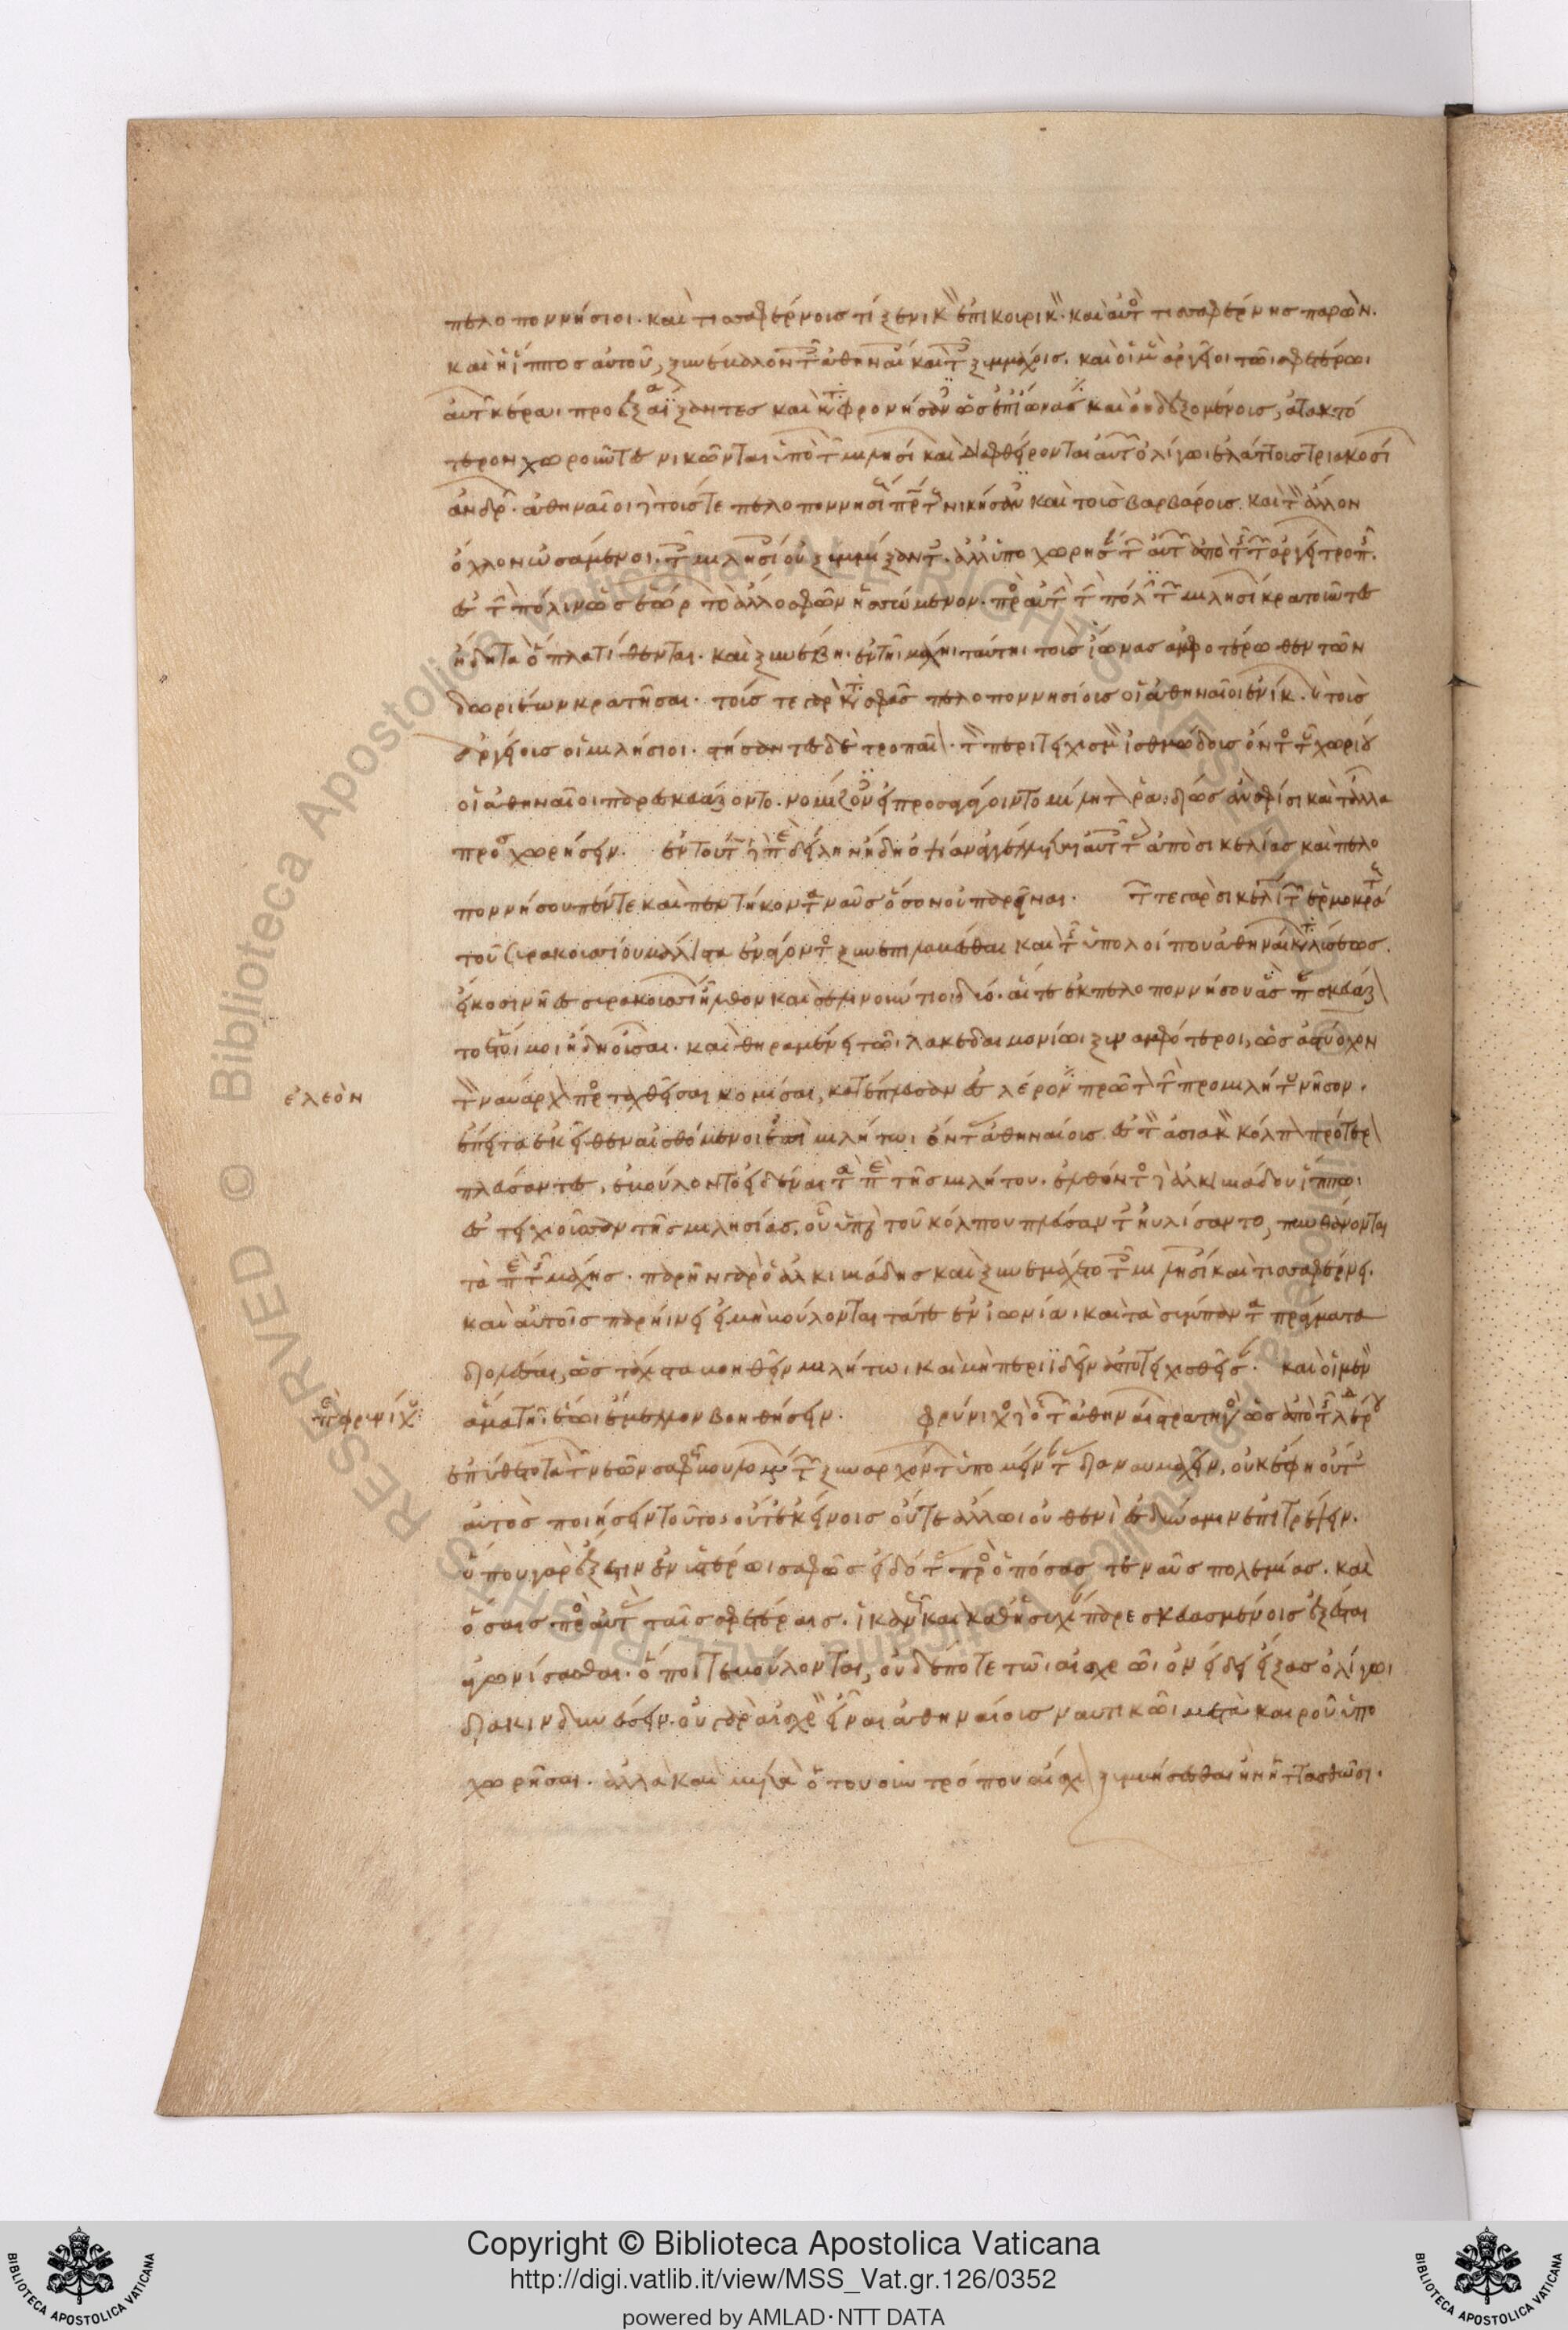 πελοποννήσιοι. καὶ τισσαφέρνους τί ξενικὸν ἐπικουρικὸν. καὶ αὐτὸς τισσαφέρνης παρὼν.
καὶ ἡ ἵππος αὐτοῦ, ξυνέβαλον τοῖς ἀθηναίοις καὶ τοῖς ξυμμάχοις. καὶ οἱ μὲν ἀργεῖοι τῶι σφετέρωι
αὐτῶν κέραι προεξαΐξαντες καὶ καταφρονήσαντες ὡς ἐπ ἴωνας καὶ οὐ δεξομένους, ἀτακτό
τερον χωροῦντες νικῶνται ὑπὸ τῶν μιλησίων καὶ διαφθείρονται αὐτῶν ὀλίγωι ἐλάττους τριακοσίων
ἀνδρῶν. ἀθηναῖοι δὲ τούς τε πελοποννησίους πρώτους νικήσαντες καὶ τοὺς βαρβάρους. καὶ τὸν ἄλλον
ὄχλον ὠσάμενοι. τοῖς μιλησίοις οὐ ξυμμίξαντες. ἀλλ ὑποχωρησάντων αὐτῶν ἀπὸ τῆς τῶν ἀργείων τροπῆς.
ἐς τὴν πόλιν ὡς ἑώρων τὸ ἄλλο σφῶν ἡσσώμενον. πρὸς αὐτὴν τὴν πόλιν τῶν μιλησίων κρατοῦντες
ἤδη τὰ ὅπλα τίθενται. καὶ ξυνέβη. ἐν τῆι μάχηι ταύτηι τοὺς ἴωνας ἀμφοτέρωθεν τῶν
δωριέων κρατῆσαι. τούς τε γὰρ κατὰ σφᾶς πελοποννησίους οἱ ἀθηναῖοι ἐνίκων. καὶ τοὺς
ἀργείους οἱ μιλήσιοι. στήσαντες δὲ τροπαῖον. τὸν περιτειχισμὸν ἰσθμώδους ὄντος τοῦ χωρίου
οἱ ἀθηναῖοι παρεσκευάζοντο. νομίζοντες εἰ προσαγάγοιντο μίλητον ῥαιδίως ἂν σφίσι καὶ τἆλλα
προσχωρήσειν. ἐν τούτωι δὲ περὶ δείλην ἤδη ὀψίαν ἀγγέλλεται αὐτοῖς τὰς ἀπὸ σικελίας καὶ πελο
ποννήσου πέντε καὶ πεντήκοντα ναῦς ὅσον οὐ παρεῖναι. τῶν τε γὰρ σικελιωτῶν ἑρμοκράτους
τοῦ συρακουσίου μάλιστα ἐνάγοντος ξυνεπιλαβέσθαι καὶ τῆς ὑπολοίπου ἀθηναίων καταλύσεως.
εἴκοσι νῆες συρακουσίων ἦλθον καὶ σελινούντιοι δύο. αἵ τε ἐκ πελοποννήσου ἃς παρεσκευάζον
το ἑτοῖμοι ἤδη οὖσαι. καὶ θηραμένει τῶι λακεδαιμονίωι ξυναμφότεροι, ὡς ἀστύοχον
τὸν ναύαρχον προσταχθεῖσαι κομίσαι, κατέπλευσαν ἐς λέρον πρῶτον τὴν πρὸ μιλήτου νῆσον.
ἔπειτα ἐκεῖθεν αἰσθόμενοι ἐπὶ μιλήτωι ὄντας ἀθηναίους. ἐς τὸν ἰασικὸν κόλπον πρότερον
πλεύσαντες, ἐβούλοντο εἰδέναι τὰ περὶ τῆς μιλήτου. ἐλθόντος δὲ ἀλκιβιάδου ἵππωι
ἐς τειχιοῦσαν τῆς μιλησίας, οὗπερ τοῦ κόλπου πλεύσαντες ηὐλίσαντο, πυνθάνονται
τὰ περὶ τῆς μάχης. παρῆν γὰρ ὁ ἀλκιβιάδης καὶ ξυνεμάχετο τοῖς μιλησίοις καὶ τισσαφέρνει.
καὶ αὐτοῖς παρήινει εἰ μὴ βούλονται τά τε ἐν ἰωνίαι καὶ τὰ σύμπαντα πράγματα
διολέσαι, ὡς τάχιστα βοηθεῖν μιλήτωι καὶ μὴ περιϊδεῖν ἀποτειχισθεῖσαν. καὶ οἱ μὲν
ἅμα τῆι ἕωι ἔμελλον βοηθήσειν. φρύνιχος δὲ ὁ τῶν ἀθηναίων στρατηγὸς ὡς ἀπὸ τῆς λέρου
ἐπύθετο τὰ τῶν νεῶν σαφῶς βουλομένων τῶν ξυναρχόντων ὑπομείναντας διαναυμαχεῖν, οὐκ ἔφη οὔτ
αὐτὸς ποιήσειν τοῦτο, οὔτ ἐκείνοις οὔτε ἄλλωι οὐθενὶ ἐς δύναμιν ἐπιτρέψειν.
ὅπου γὰρ ἔξεστιν ἐν ὑστέρωι σαφῶς εἰδότας πρὸς ὁπόσας τε ναῦς πολεμίας. καὶ
ὅσαις πρὸς αὐτὰς ταῖς σφετέραις. ἱκανῶς καὶ καθ ἡσυχίαν παρεσκευασμένοις ἔξεσται
ἀγωνίσασθαι. ὅποι τε βούλονται, οὐδέποτε τῶι αἰσχρῶι ὀνείδει εἴξας ἀλόγωι
διακινδυνεύσειν. οὐ γὰρ αἰσχρὸν εἶναι ἀθηναίοις ναυτικῶι μετὰ καιροῦ ὑπο
χωρῆσαι. ἀλλὰ καὶ μετὰ ὅτου οὖν τρόπου αἴσχιον ξυμβήσεσθαι ἢν ἡττηθῶσι.
ἐλεὸν
περὶ φρυνίχου
RESERVED © Biblioteca Apostolica Vaticana ALL RIGHTS RESERVED © Biblioteca Apostolica Vaticana ALL RIGHTS
Copyright © Biblioteca Apostolica Vaticana
http://digi.vatlib.it/view/MSS_Vat.gr.126/0352
powered by AMLAD·NTT DATA
BIBLIOTECA APOSTOLICA VATICANA
BIBLIOTECA APOSTOLICA VATICANA